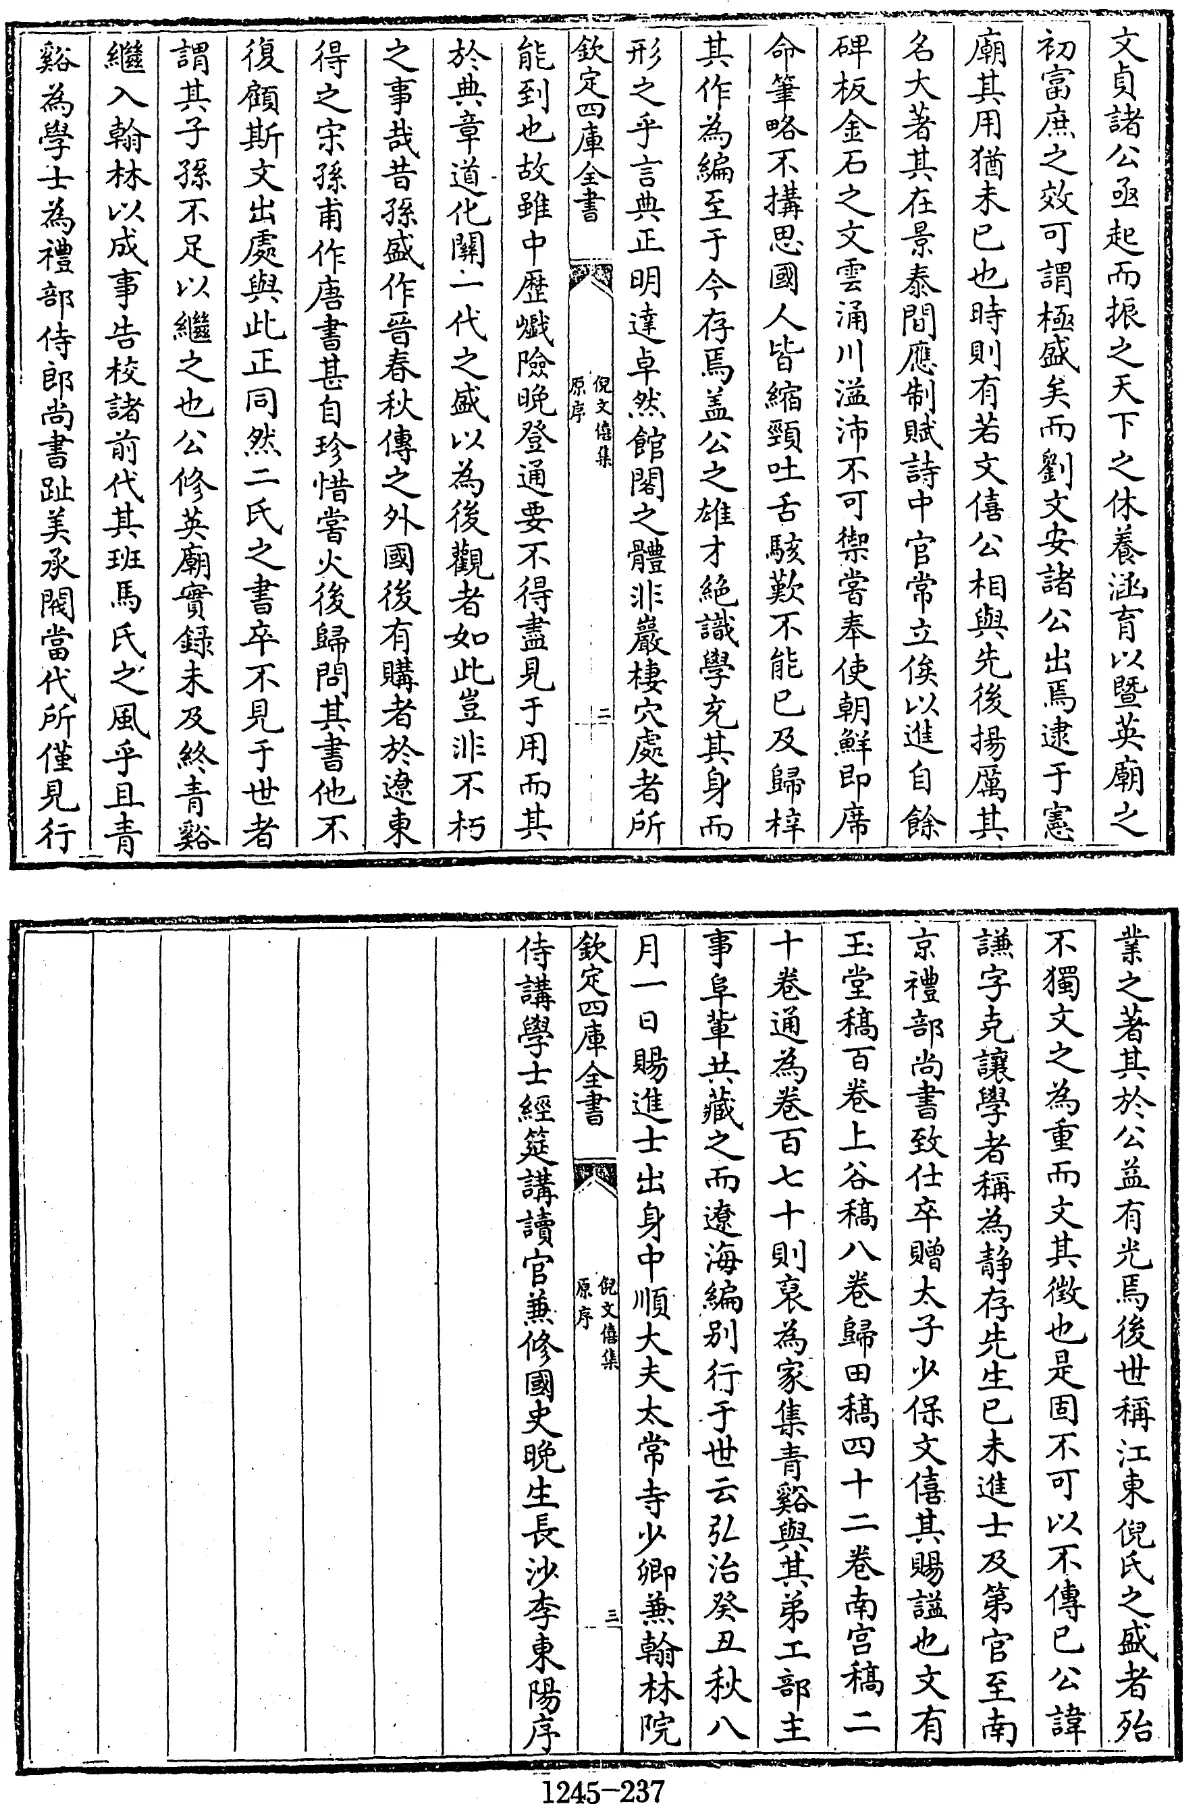 文貞諸公亟起而振之天下之休養涵育以暨英廟之
初富庶之效可謂極盛矣而劉文安諸公出焉逮于憲
廟其用猶未已也時則有若文僖公相與先後揚厲其
名大著其在景泰間應制賦詩中官常立俟以進自餘
碑板金石之文雲涌川溢沛不可禦嘗奉使朝鮮即席
命筆略不搆思國人皆縮頸吐舌駭歎不能已及歸梓
其作為編至于今存焉盖公之雄才絶識學充其身而
形之乎言典正明達卓然館閣之體非巖棲穴處者所
欽定四庫全書
倪文僖集
原序
二
能到也故雖中歷巇險晚登通要不得盡見于用而其
於典章道化關一代之盛以為後觀者如此豈非不朽
之事哉昔孫盛作晉春秋傳之外國後有購者於遼東
得之宋孫甫作唐書甚自珍惜嘗火後歸問其書他不
復顧斯文出處與此正同然二氏之書卒不見于世者
謂其子孫不足以繼之也公修英廟實録未及終青谿
繼入翰林以成事告校諸前代其班馬氏之風乎且青
谿為學士為禮部侍郎尚書趾美承閥當代所僅見行
業之著其於公益有光焉後世稱江東倪氏之盛者殆
不獨文之為重而文其徵也是固不可以不傳已公諱
謙字克讓學者稱為静存先生已未進士及第官至南
京禮部尚書致仕卒贈太子少保文僖其賜謚也文有
玉堂稿百卷上谷稿八卷歸田稿四十二卷南宮稿二
十卷通為卷百七十則裒為家集青谿與其弟工部主
事阜輩共藏之而遼海編别行于世云弘治癸丑秋八
月一日賜進士出身中順大夫太常寺少卿兼翰林院
欽定四庫全書
倪文僖集
原序
三
侍講學士經筵講讀官兼修國史晚生長沙李東陽序
1245-237